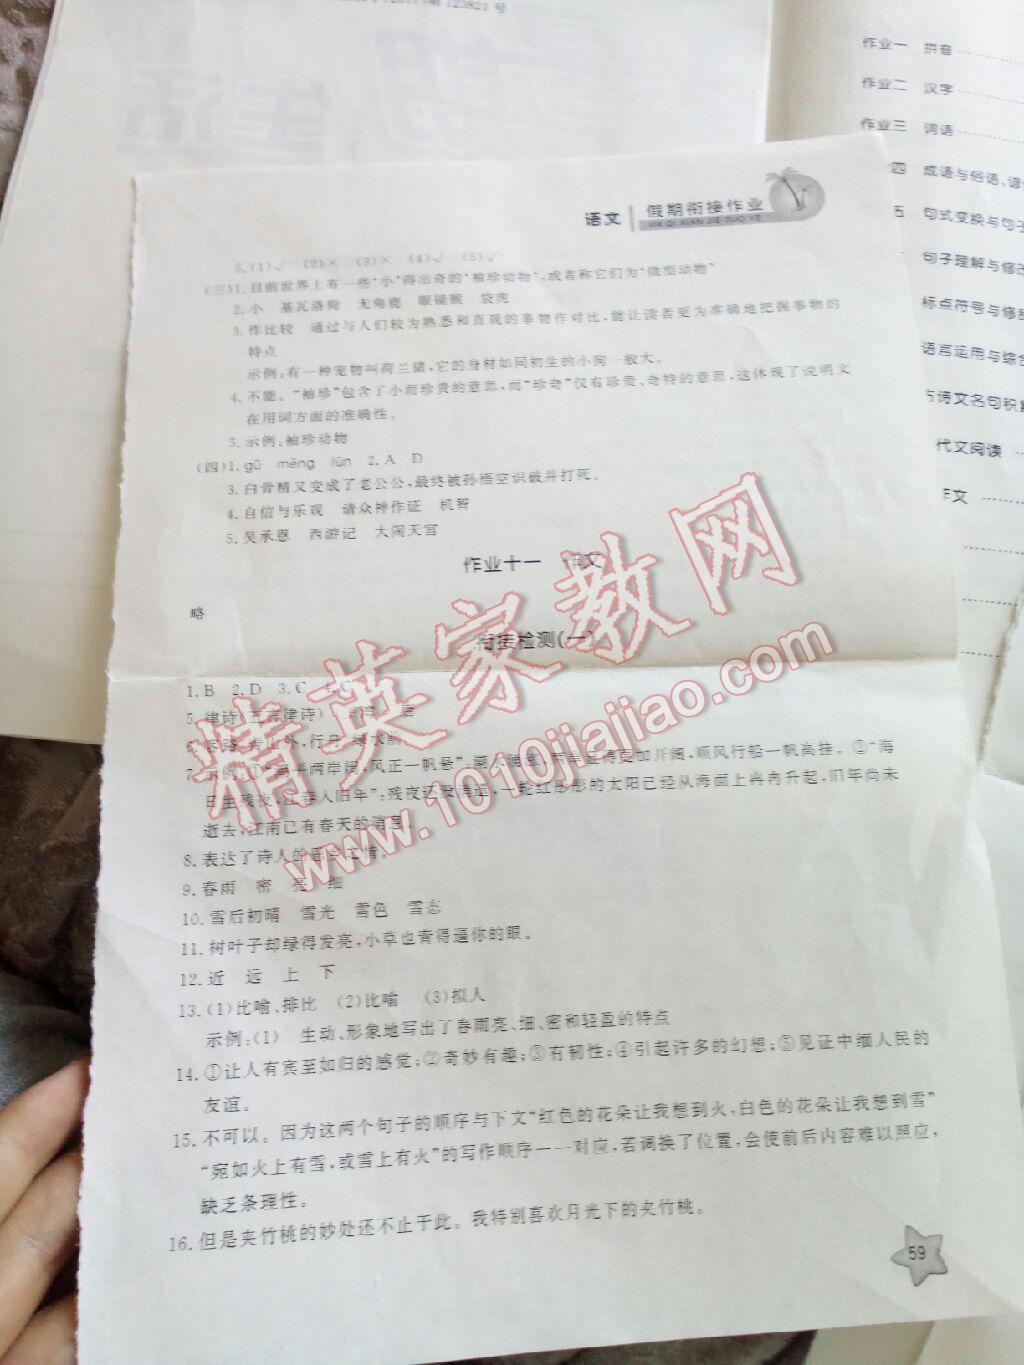 123821 号
生活
作业一 拼音
作业二 汉字
作业三 词语
四 成语与俗语、谚
五 句式变换与句子
句子理解与修改
标点符号与修辞
语言运用与综合
与诗文名句积累
代文阅读
作文
语文 假期衔接作业
JIA QI XIAN JIE ZUO YE
5.(1)√ (2)× (3)× (4)√ (5)√
(三)1.目前世界上有一些“小”得出奇的“袖珍动物”,或者称它们为“微型动物”
2.小 基瓦洛狗 无角鹿 眼镜猴 袋虎
3.作比较 通过与人们较为熟悉和直观的事物作对比,能让读者更为准确地把握事物的
特点
示例:有一种宠物叫荷兰猪,它的身材如同初生的小狗一般大。
4.不能。“袖珍”包含了小而珍贵的意思,而“珍奇”仅有珍贵、奇特的意思,这体现了说明文
在用词方面的准确性。
5.示例:袖珍动物
(四)1.gū mēng lūn 2.A D
3.白骨精又变成了老公公,最终被孙悟空识破并打死。
4.自信与乐观 请众神作证 机智
5.吴承恩 西游记 大闹天宫
作业十一 作文
略
衔接检测(一)
1.B 2.D 3.C 4.C
5.律诗(五言律诗) 唐
6.客路 青山外,行舟 绿水前
7.示例:①“潮平两岸阔,风正一帆悬”:潮水涌涨,两岸显得更加开阔,顺风行船一帆高挂。②“海
日生残夜,江春入旧年”:残夜还没消退,一轮红彤彤的太阳已经从海面上冉冉升起,旧年尚未
逝去,江南已有春天的消息。
8.表达了诗人的思乡之情。
9.春雨 密 亮 细
10.雪后初晴 雪光 雪色 雪态
11.树叶子却绿得发亮,小草也青得逼你的眼。
12.近 远 上 下
13.(1)比喻、排比 (2)比喻 (3)拟人
示例:(1) 生动、形象地写出了春雨亮、细、密和轻盈的特点
14.①让人有宾至如归的感觉;②奇妙有趣;③有韧性;④引起许多的幻想;⑤见证中缅人民的
友谊。
15.不可以。因为这两个句子的顺序与下文“红色的花朵让我想到火,白色的花朵让我想到雪”
“宛如火上有雪,或雪上有火”的写作顺序一一对应,若调换了位置,会使前后内容难以照应,
缺乏条理性。
16.但是夹竹桃的妙处还不止于此。我特别喜欢月光下的夹竹桃。
59
精英家教网
www.1010jiajiao.com